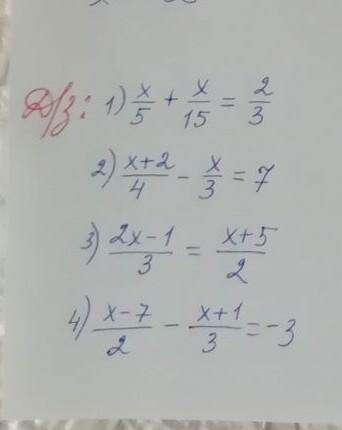 Д/з: 1) x/5 + x/15 = 2/3
2) (x+2)/4 - x/3 = 7
3) (2x-1)/3 = (x+5)/2
4) (x-7)/2 - (x+1)/3 = -3